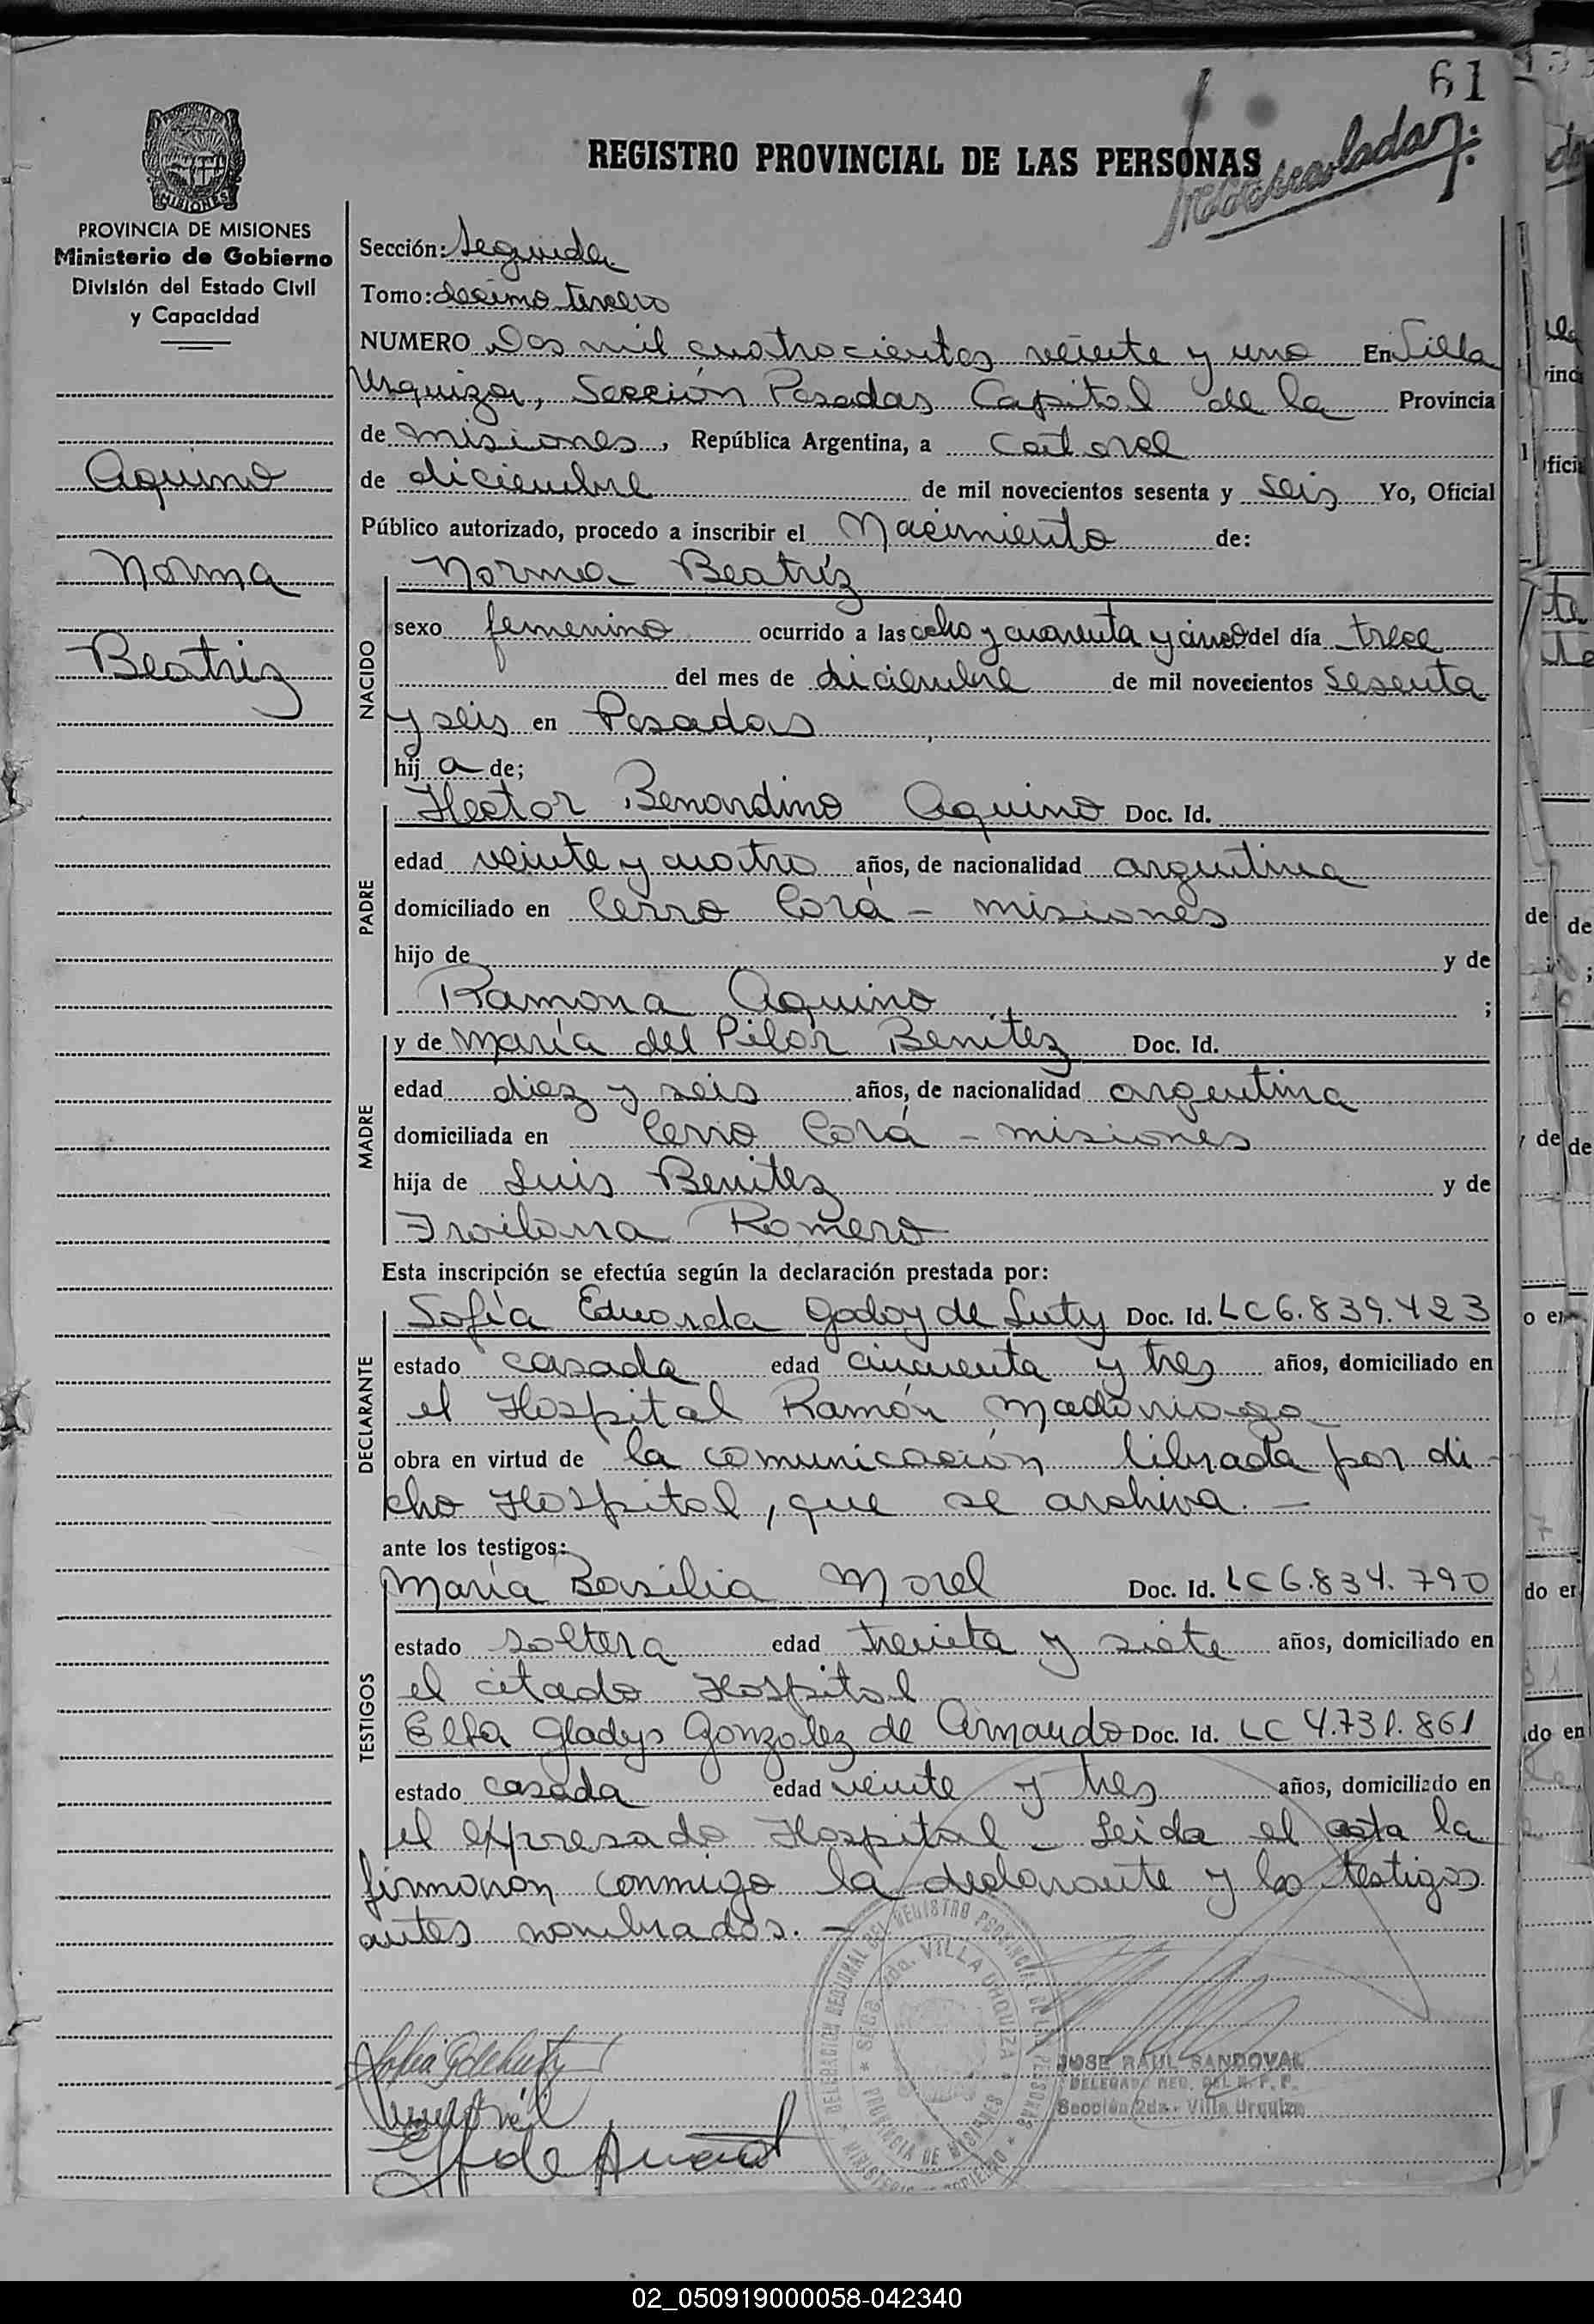 61
REGISTRO PROVINCIAL DE LAS PERSONAS
PROVINCIA DE MISIONES
Ministerio de Gobierno
División del Estado Civil
y Capacidad
Aquino
Norma
Beatriz
Sección: Segunda
Tomo: decimo tercero
NUMERO Dos mil cuatrocientos veinte y uno En Villa
Urquiza, Sección Posadas Capital de la Provincia
de Misiones, República Argentina, a catorce
de diciembre de mil novecientos sesenta y seis Yo, Oficial
Público autorizado, procedo a inscribir el Nacimiento de:
NACIDO
Norma Beatríz
sexo femenino ocurrido a las ocho y cuarenta y cinco del día trece
del mes de diciembre de mil novecientos sesenta
y seis en Posadas
hij a de;
PADRE
Hector Bernardino Aquino Doc. Id.
edad veinte y cuatro años, de nacionalidad argentina
domiciliado en Cerro Corá - Misiones
hijo de y de
Ramona Aquino ;
MADRE
y de María del Pilár Benítez Doc. Id.
edad diez y seis años, de nacionalidad argentina
domiciliada en Cerro Corá - misiones
hija de Luis Benitez y de
Froilana Romero
Esta inscripción se efectúa según la declaración prestada por:
DECLARANTE
Sofía Eduarda Godoy de Luty Doc. Id. LC 6.839.423
estado casada edad cincuenta y tres años, domiciliado en
el Hospital Ramón Madariaga
obra en virtud de la comunicación librada por di-
cho Hospital, que se archiva. -
ante los testigos:
TESTIGOS
María Basilia Morel Doc. Id. LC 6.834.790
estado soltera edad treinta y siete años, domiciliado en
el citado Hospital
Elfa Gladys Gonzalez de Armando Doc. Id. LC 4.731.861
estado casada edad veinte y tres años, domiciliado en
el expresado Hospital - Leida el acta la
firmaron conmigo la declarante y los testigos
antes nombrados. -
DELEGACION REGIONAL DEL REGISTRO PROVINCIAL DE LAS PERSONAS
Secc. 2da. VILLA URQUIZA
PROVINCIA DE MISIONES
MINISTERIO DE GOBIERNO
JOSE RAUL SANDOVAL
DELEGADO REG. DEL R. P. P.
Sección 2da - Villa Urquiza
02_050919000058-042340